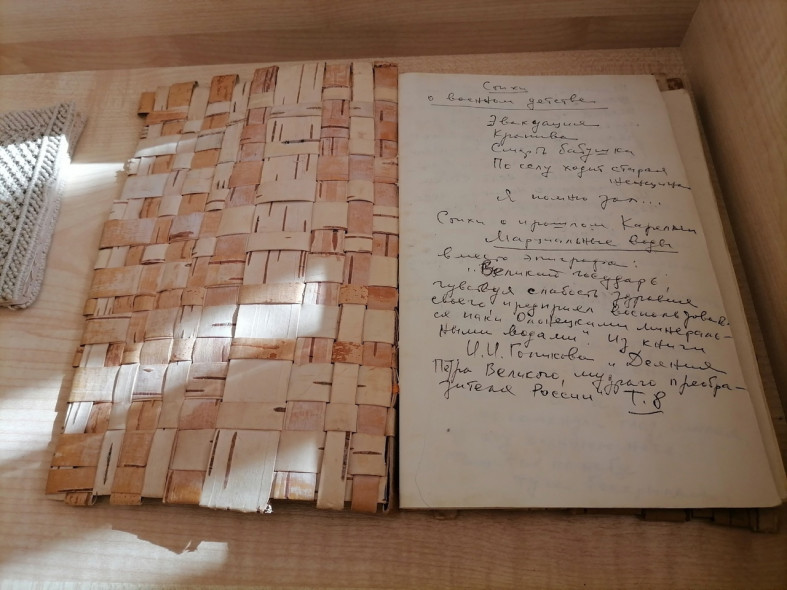 Стихи
о военном детстве
Эвакуация
Крапива
Смерть бабушки
По селу ходит старая
женщина
Я помню зал...
Стихи о прошлом Карелии
Марциальные воды
вместо эпиграфа:
„Великий государь,
чувствуя слабость здравия
своего предприял воспользовать-
ся паки Олонецкими минераль-
ными водами" Из книги
И.И. Голикова „Деяния
Петра Великого, мудраго преобра-
зителя России" Т. 8